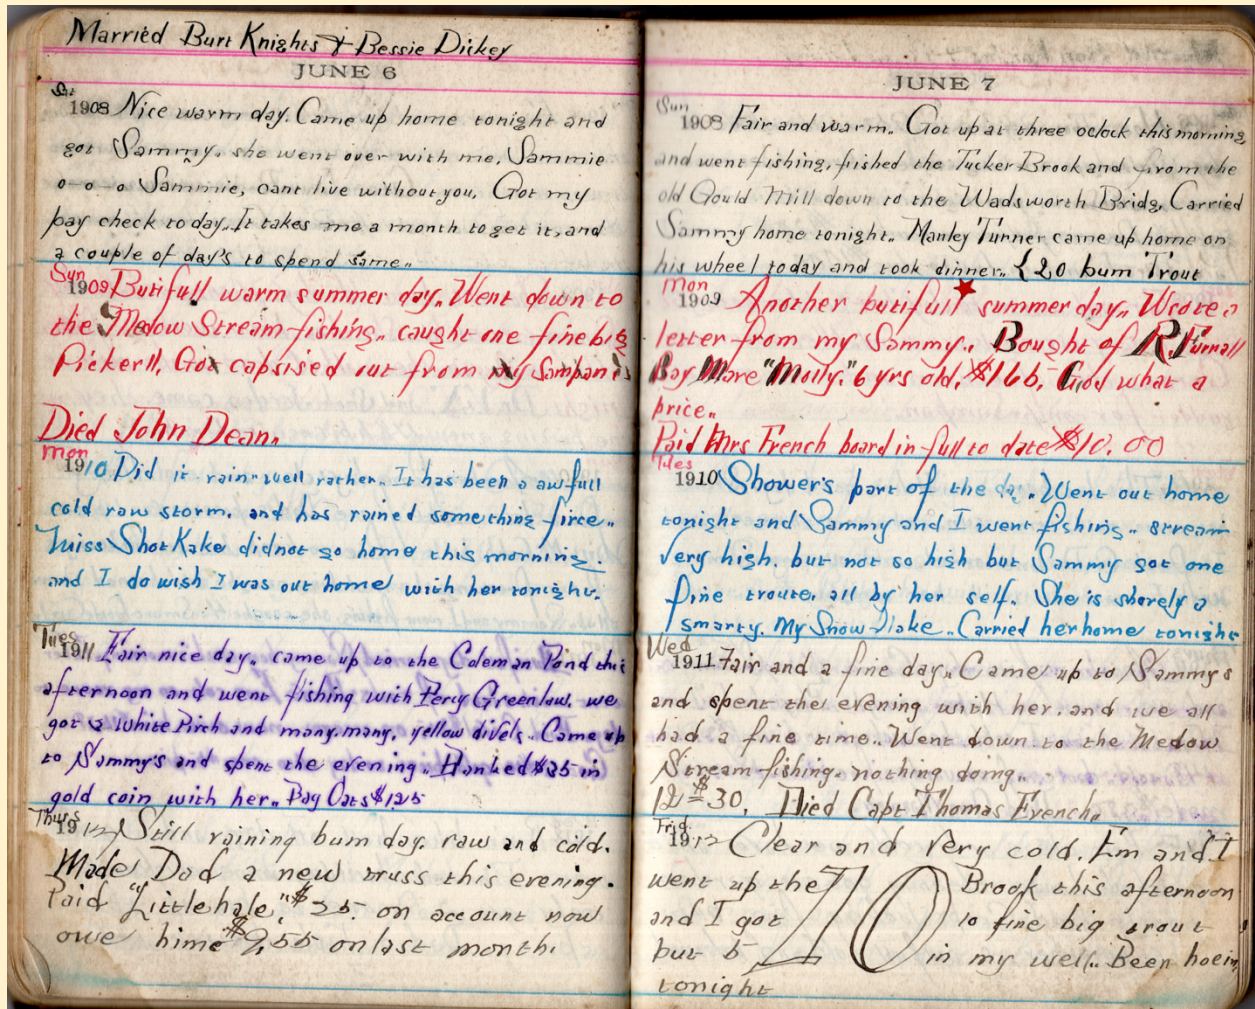 Married Burt Knights & Bessie Dickey
JUNE 6
Sat
1908 Nice warm day. Came up home tonight and
got Sammy, she went over with me, Sammie
o-o-o Sammie, cant live without you, Got my
pay check today,. It takes me a month to get it, and
a couple of day's to spend same,.
Sun
1909 Butifull warm summer day,. Went down to
the Medow Stream fishing,. caught one fine big
Pickerll, Got capsised out from my Sampan
Died John Dean,.
mon
1910 Did it rain. well rather,. It has been a awfull
cold raw storm. and has rained something firce,.
Miss Shot Kake didnot go home this morning.
and I do wish I was out home with her tonight.
Tues
1911 Fair nice day,. came up to the Coleman Pond this
afternoon and went fishing with Percy Greenlaw, we
got 2 White Pirch and many, many, yellow divels,. Came up
to Sammy's and spent the evening,. Hanked $35 in
gold coin with her,. Pay Oats $1.25
Thurs
1912 Still raining bum day, raw and cold.
Made Dad a new truss this evening.
Paid "Littlehale," $25. on account now
owe hime $9,55 on last month.
JUNE 7
Sun
1908 Fair and warm,. Got up at three oclock this morning
and went fishing, fished the Tucker Brook and from the
old Gould Mill down to the Wadsworth Bridg, Carried
Sammy home tonight,. Manley Turner came up home on
his wheel today and took dinner,. {20 bum Trout
mon
1909 Another butifull summer day,. Wrote a
letter from my Sammy,. Bought of R. Furnall
Bay Mare "Molly," 6 yrs old, $165, God what a
price,.
Paid Mrs French board in full to date $10.00
Tues
1910 Shower's part of the day,. Went out home
tonight and Sammy and I went fishing,. stream
very high, but not so high but Sammy got one
fine troute, all by her self. She is shorely a
smarty. My Snow Flake,. Carried her home tonight
Wed
1911 Fair and a fine day,. Came up to Sammys
and spent the evening with her, and we all
had a fine time,. Went down to the Medow
Stream fishing. nothing doing,.
12 = $30, Died Capt Thomas French,.
Frid
1912 Clear and very cold, Em and I
went up the Brook this afternoon
and I got 10 10 fine big trout
put 5 in my well,. Been hoein
tonight